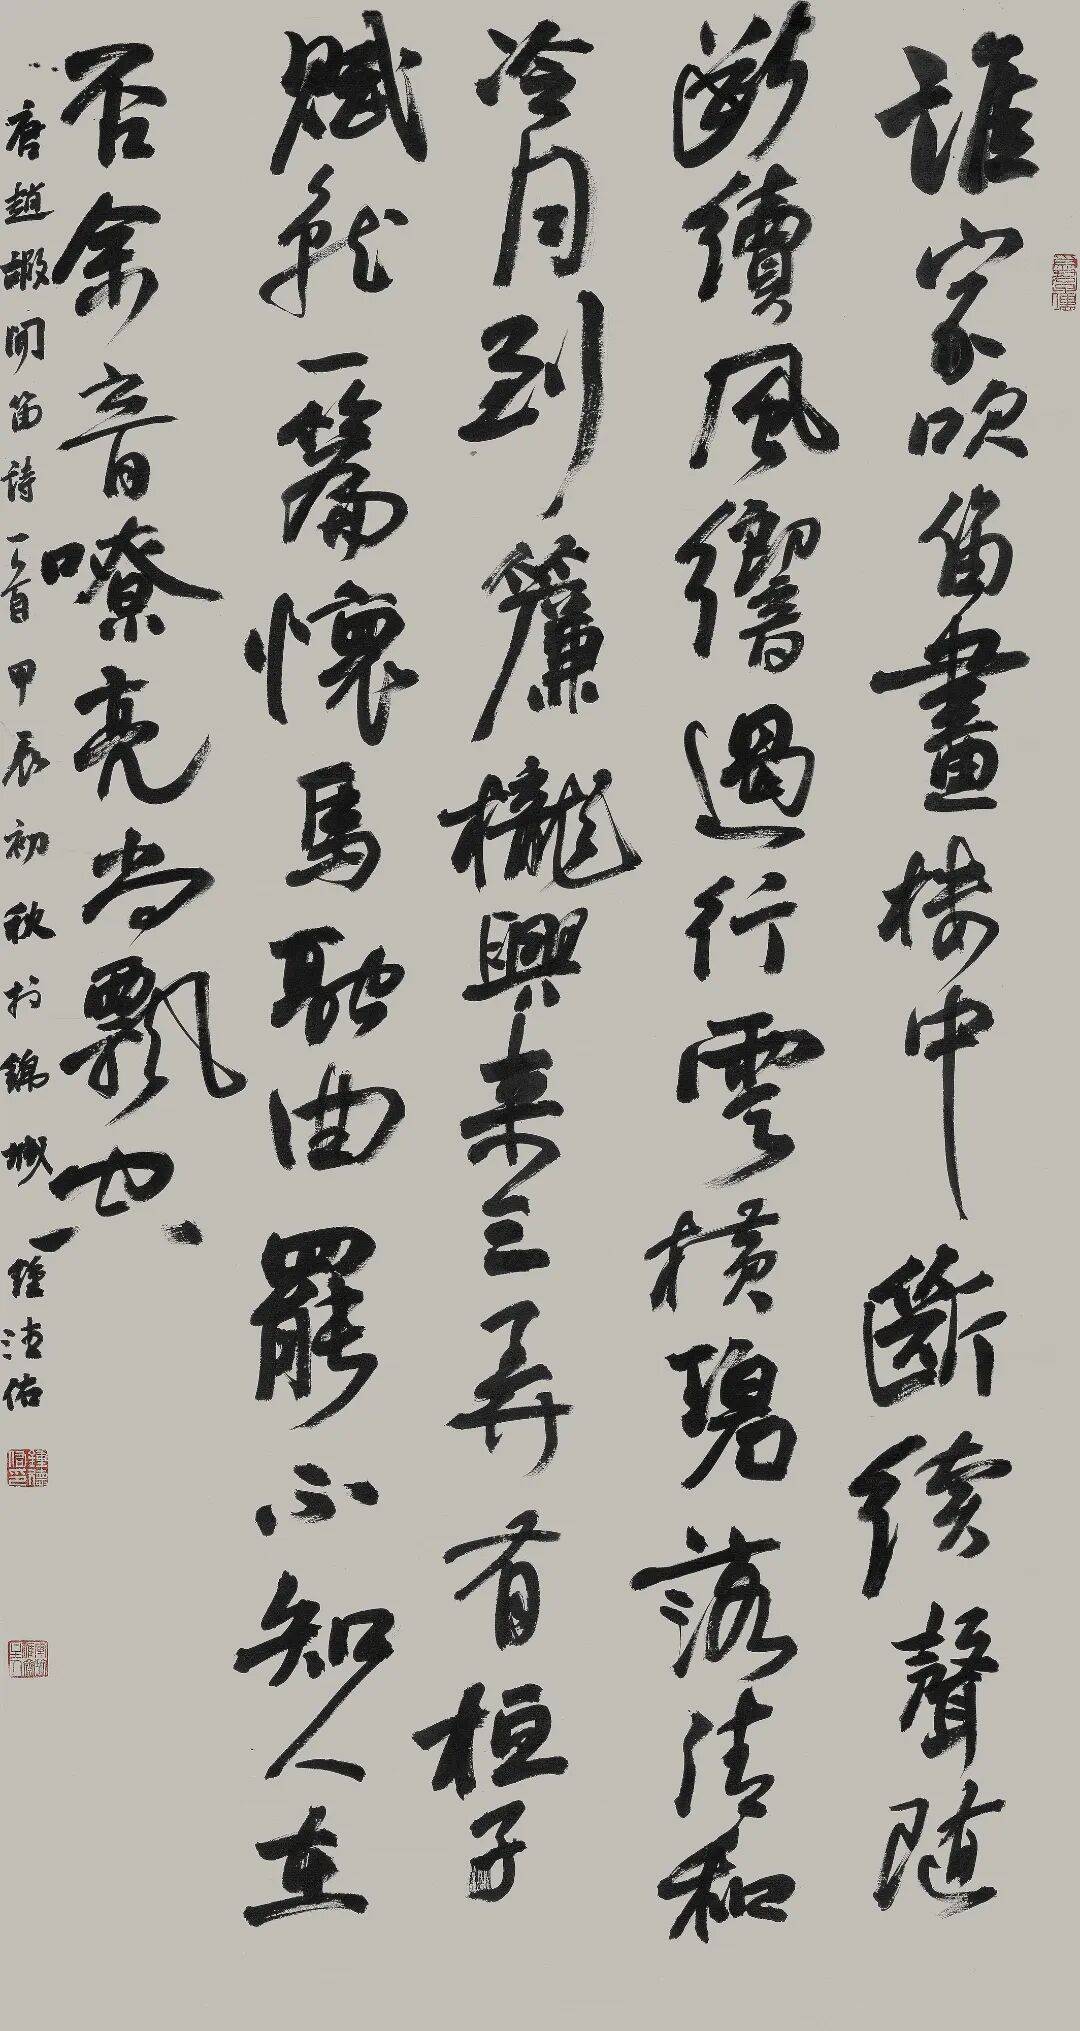 誰家吹笛畫楼中斷續聲随
斷續風響遏行雲橫碧落清和
冷月到簾櫳興来三弄有桓子
賦就一篇懷馬融曲罷不知人在
否余音嘹亮尚飄空
唐趙嘏聞笛詩一首甲辰初秋於錦城鍾德佑